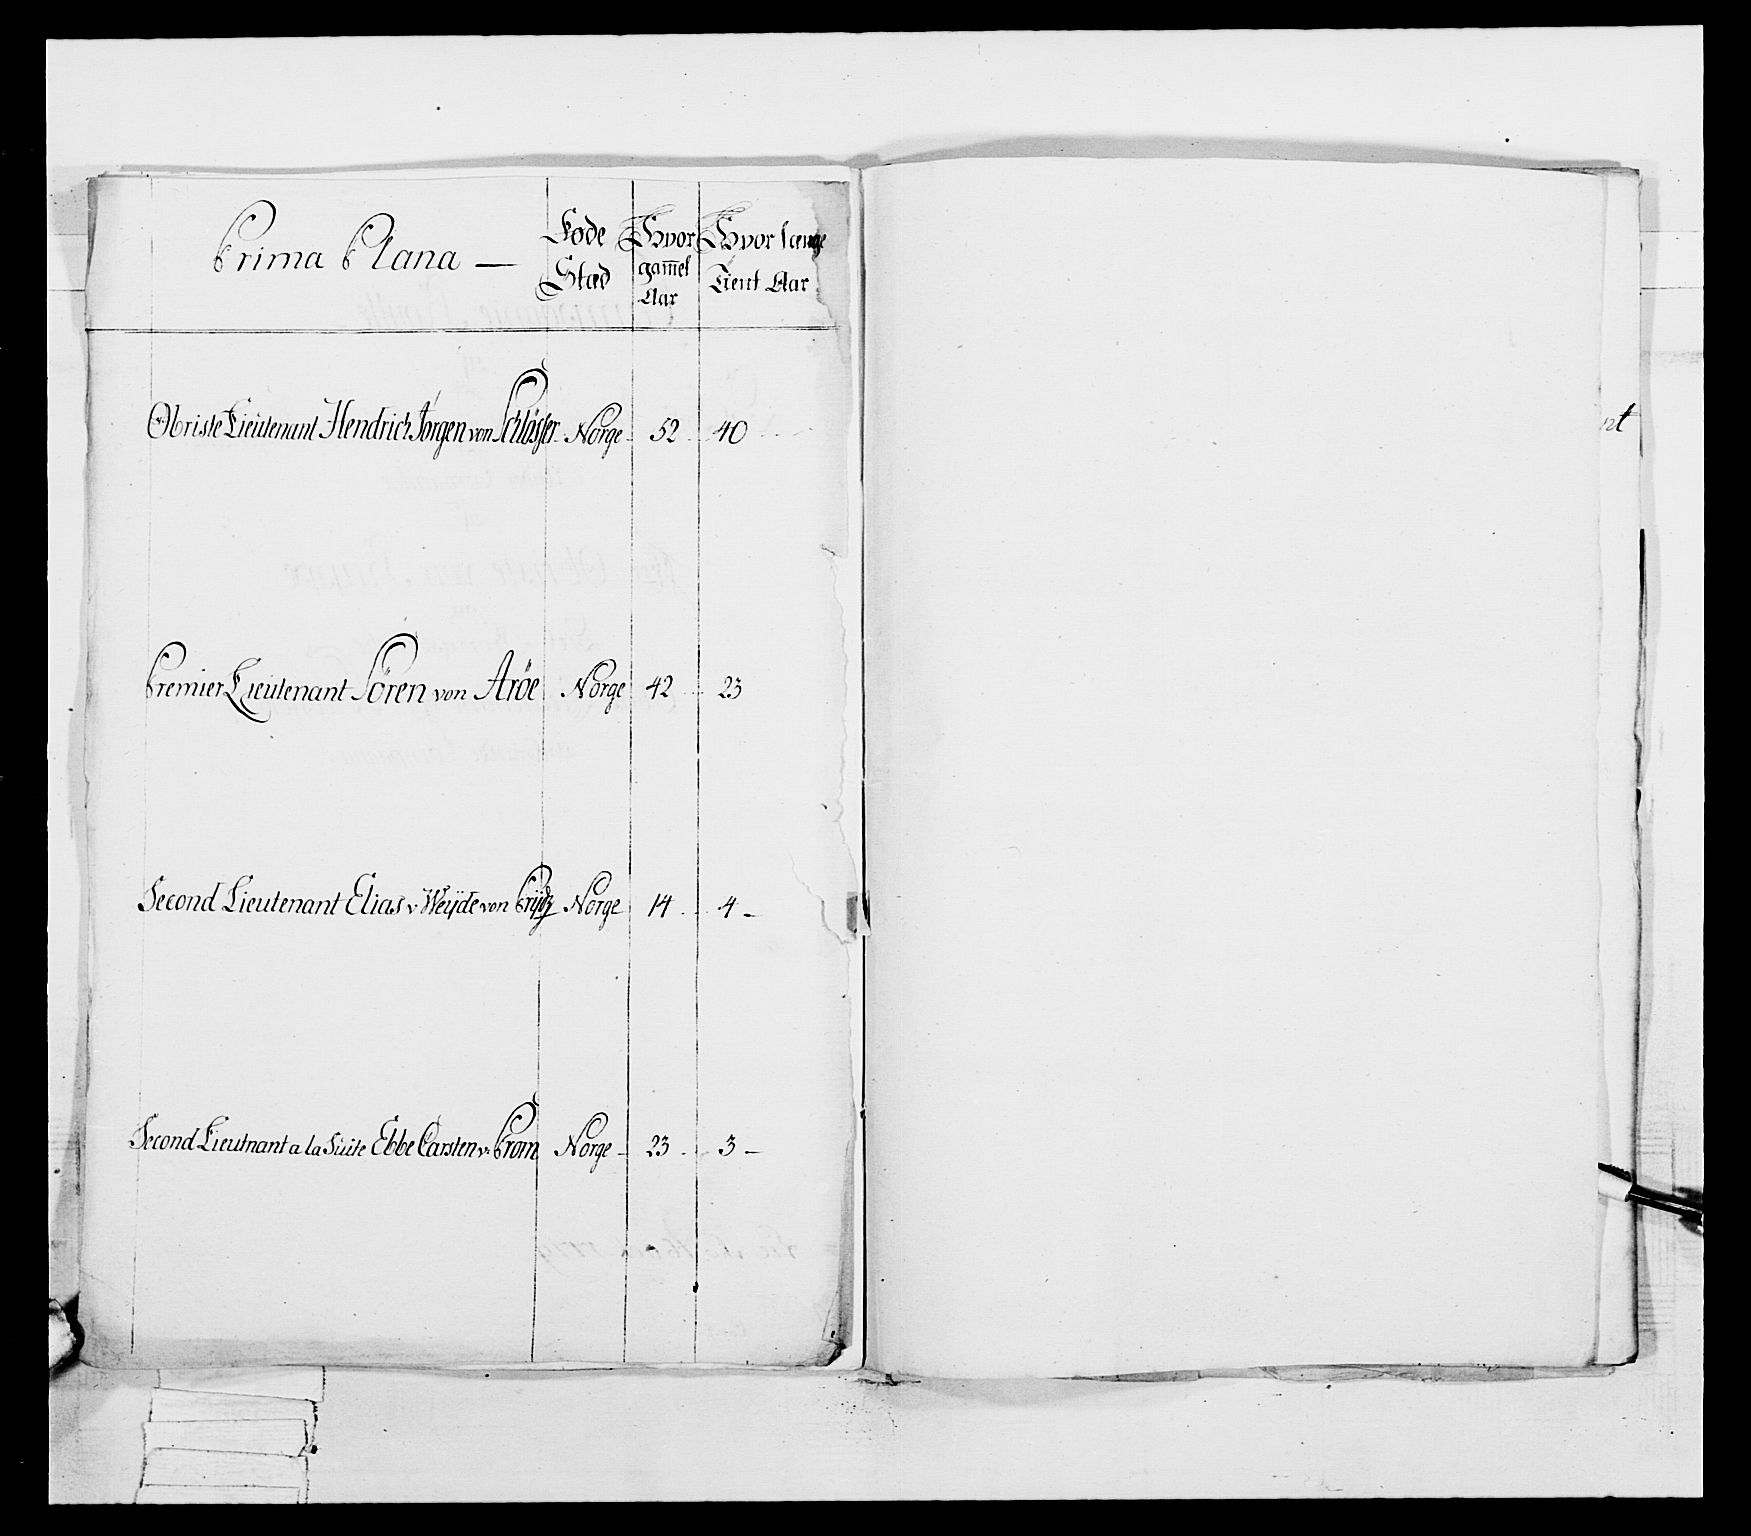 Prima Plana — Føde Stæd Hvor gam̄el Aar Hvor længe Tient Aar
Obriste Lieutenant Hendrich Jørgen von Schlösser Norge 52 40
Premier Lieutenant Sören von Aröe Norge 42 23
Second Lieutenant Elias v Weÿde von Prÿdz Norge 14 4
Second Lieutnant a la Suite Ebbe Carsten v: Prom Norge 23 3
nt